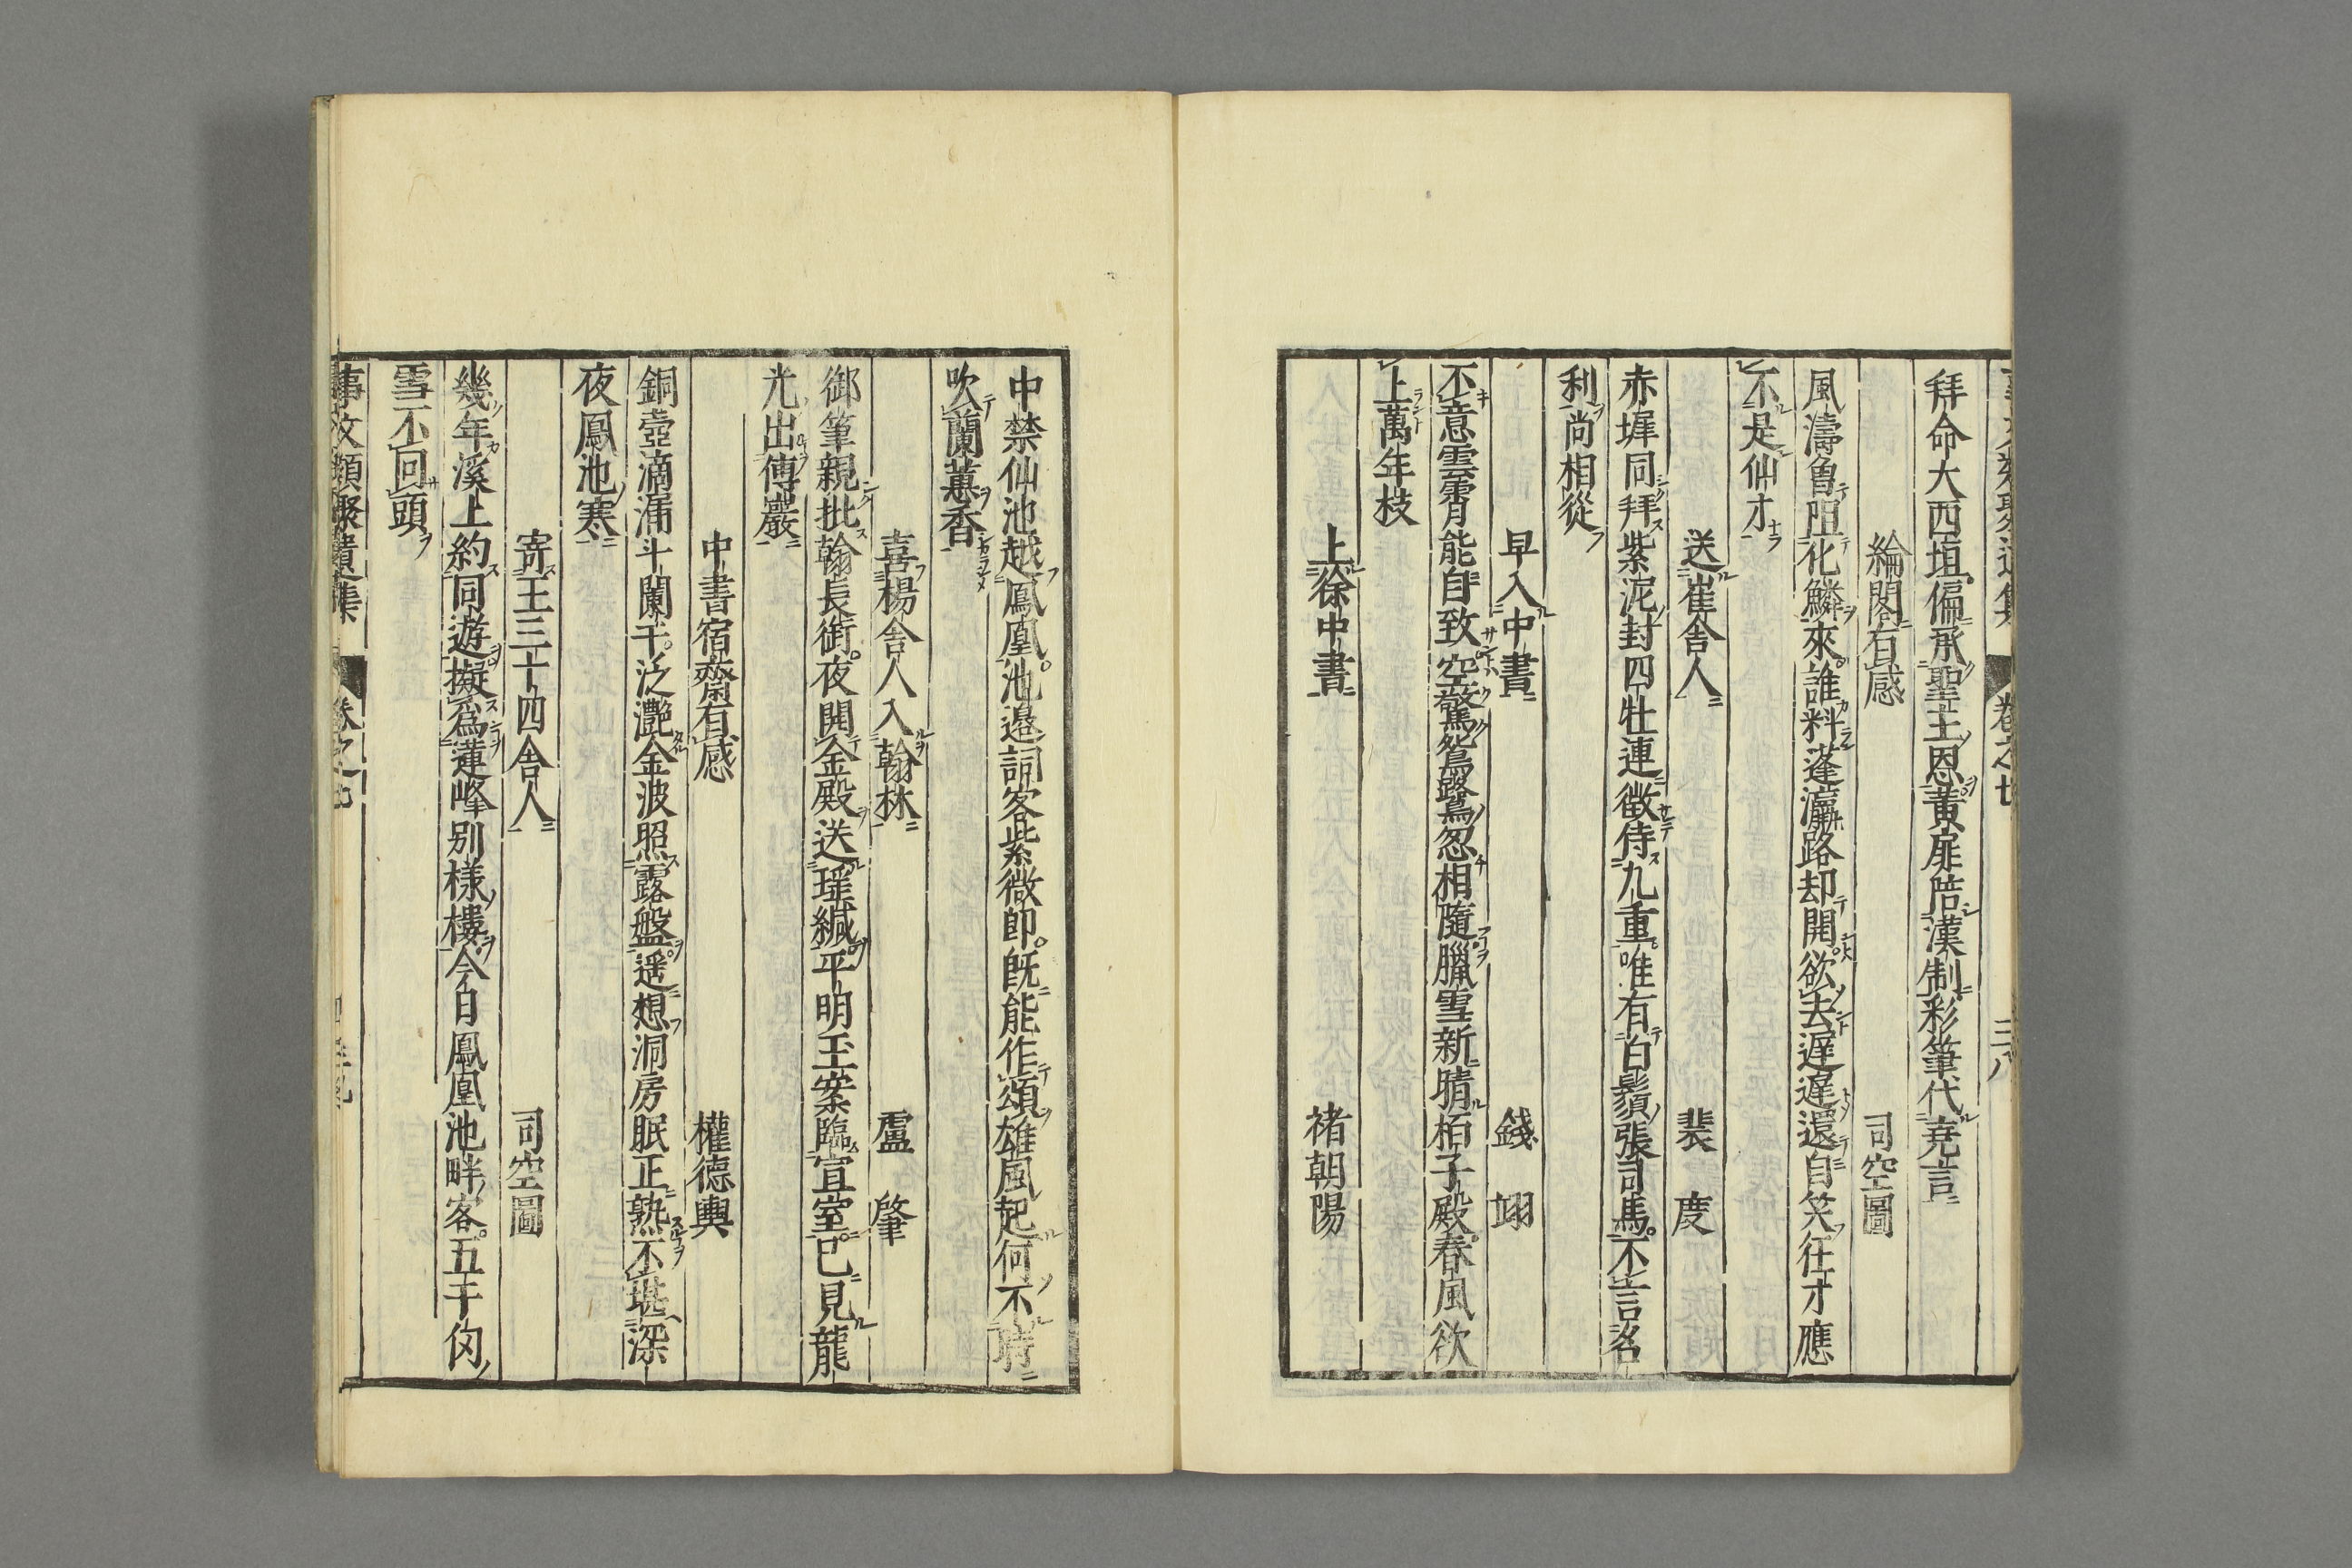 拜命大西垣偏承聖主恩黃扉陪漢制彩筆代堯言
綸閣有感 司空圖
風濤魯阻化鱗來誰料蓬瀛路却開欲去遲遲還自笑狂才應
不是仙才
送崔舍人 裴度
赤墀同拜紫泥封四牡連徵侍九重唯有白鬚張司馬不言名
利尚相從
早入中書 錢翊
不意雲霄能自致空驚鴛鷺忽相隨臘雪新晴栢子殿春風欲
上萬年枝
上徐中書 褚朝陽
中禁仙池越鳳凰池邊詞客紫微郎既能作頌雄風起何不時
吹蘭蕙香
喜楊舍人入翰林 盧肇
御筆親批翰長銜夜開金殿送瑤緘平明玉案臨宣室已見龍
光出傅巖
中書宿齋有感 權德輿
銅壺滴漏斗闌干泛灧金波照露盤遥想洞房眠正熟不堪深
夜鳳池寒
寄王三十四舍人 司空圖
幾年溪上約同遊擬爲蓮峰别樣樓今日鳳凰池畔客五千仞
雪不回頭
事文類聚遺集 卷之七